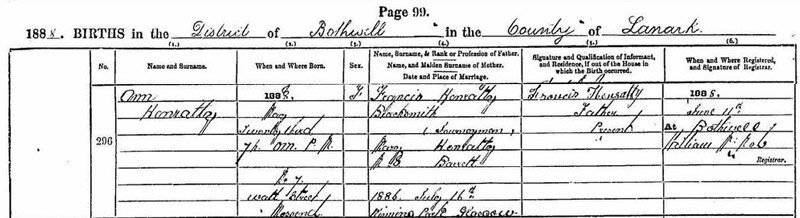 Page 99.
1888. BIRTHS in the District of Bothwell in the County of Lanark.
(1.) (2.) (3.) (4.) (5.) (6.)
No. Name and Surname. When and Where Born. Sex. Name, Surname, & Rank or Profession of Father. Name, and Maiden Surname of Mother. Date and Place of Marriage. Signature and Qualification of Informant, and Residence, if out of the House in which the Birth occurred. When and Where Registered, and Signature of Registrar.
Ann 1888, F Francis Henratty Francis Henratty 1888,
Henratty May Blacksmith Father June 11th
Twenty third (Journeyman) Present At Bothwell
296 7h. 0m. P.M. Mary Henratty William
M.S. Barrett Registrar.
No 7
Watt Street 1886, July 16th
Mossend Kinning Park Glasgow